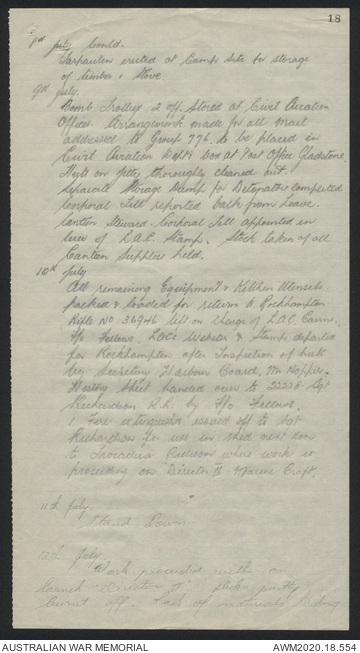 18
8th July Could.
Tarpaulin erected at Camp Site for storage
of timber & Stove.
9th July.
Bomb Trolleys 2 off. Stored at Civil Aviation
Office. Arrangements made for all mail
addressed to Group 776 to be placed in
Civil Aviation Dept's box at Post Office Gladstone
Huts on jetty thoroughly cleaned out.
Separate Storage Dump for Detonators completed
Corporal Tell reported back from Leave.
Canteen Steward. Corporal Tell appointed in
lieu of L.A.C. Stamp. Stock taken of all
Canteen Supplies held.
10th July
All remaining Equipment & Kitchen Utensils
packed & loaded for return to Rockhampton
Rifle No 36946 left on charge of L.A.C. Cairns.
F/o Fellows. LACs Webster & Stamp departed
for Rockhampton after Inspection of huts
by Secretary Harbour Board, Mr
History Sheet handed over to 22228 Sgt
Richardson R.L. by F/o Fellows.
1 Fire extinguisher issued off to Sgt
Richardson for use in shed next door
to Trocadero where work is
proceeding on "Director II" Marine Craft.
11th July.
Stand Down
12th July.
Work proceeded with on
launch "Director II"
burnt off. Lack of materials
AUSTRALIAN WAR MEMORIAL
AWM2020.18.554